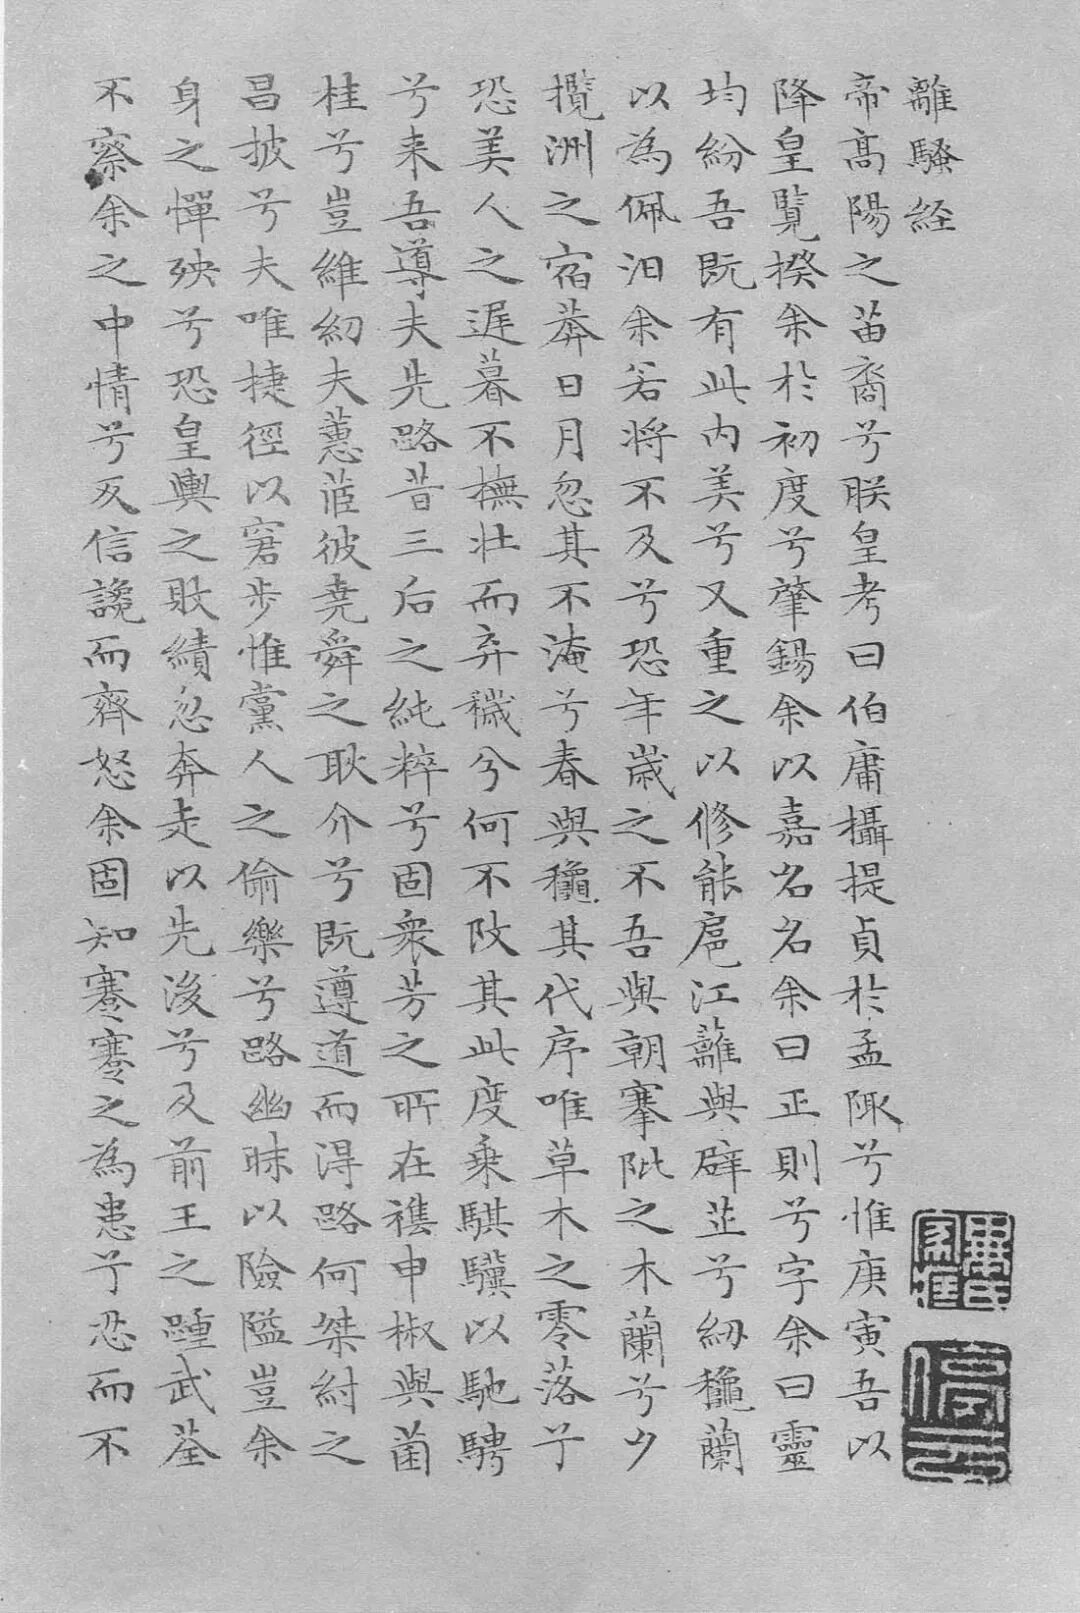 離騷經
帝髙陽之苗裔兮朕皇考曰伯庸攝提貞於孟陬兮惟庚寅吾以
降皇覽揆余於初度兮肇錫余以嘉名名余曰正則兮字余曰靈
均紛吾既有此内美兮又重之以修能扈江蘺與辟芷兮紉龝蘭
以為佩汨余若將不及兮恐年歳之不吾與朝搴阰之木蘭兮夕
攬洲之宿莽日月忽其不淹兮春與龝其代序唯草木之零落兮
恐美人之遲暮不撫壯而弃穢兮何不改其此度乗騏驥以馳騁
兮来吾導夫先路昔三后之純粹兮固衆芳之所在襍申椒與菌
桂兮豈維紉夫蕙茝彼堯舜之耿介兮既遵道而得路何桀紂之
昌披兮夫唯捷徑以窘步惟黨人之偷樂兮路幽昧以險隘豈余
身之憚殃兮恐皇輿之敗績忽奔走以先後兮及前王之踵武荃
不察余之中情兮反信讒而齊怒余固知謇謇之為患兮忍而不
停雲